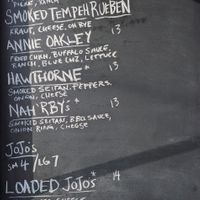 PICKLE, RANCH
SMOKED TEMPEH RUEBEN
KRAUT, CHEESE, ON RYE
ANNIE OAKLEY 13
FRIED CHKN, BUFFALO SAUCE,
RANCH, BLEU CHZ, LETTUCE
HAWTHORNE* 13
SMOKED SEITAN, PEPPERS,
ONION, CHEESE
NAH'RBYS* 13
SMOKED SEITAN, BBQ SAUCE,
ONION RING, CHEESE
JOJOS
SM 4/LG 7
LOADED JOJOS* 14
CHEESE